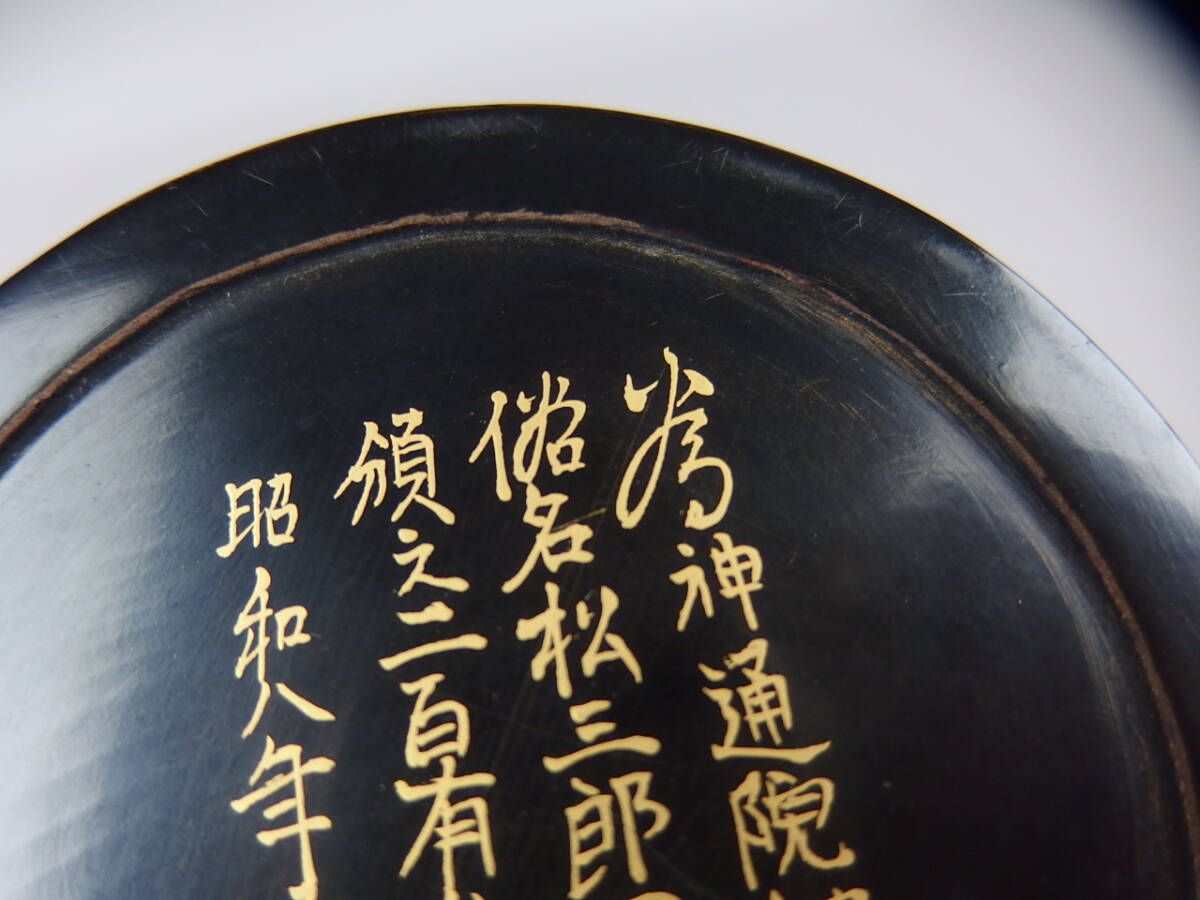 為神通院
俗名松三郎
頒之二百有
昭和八年